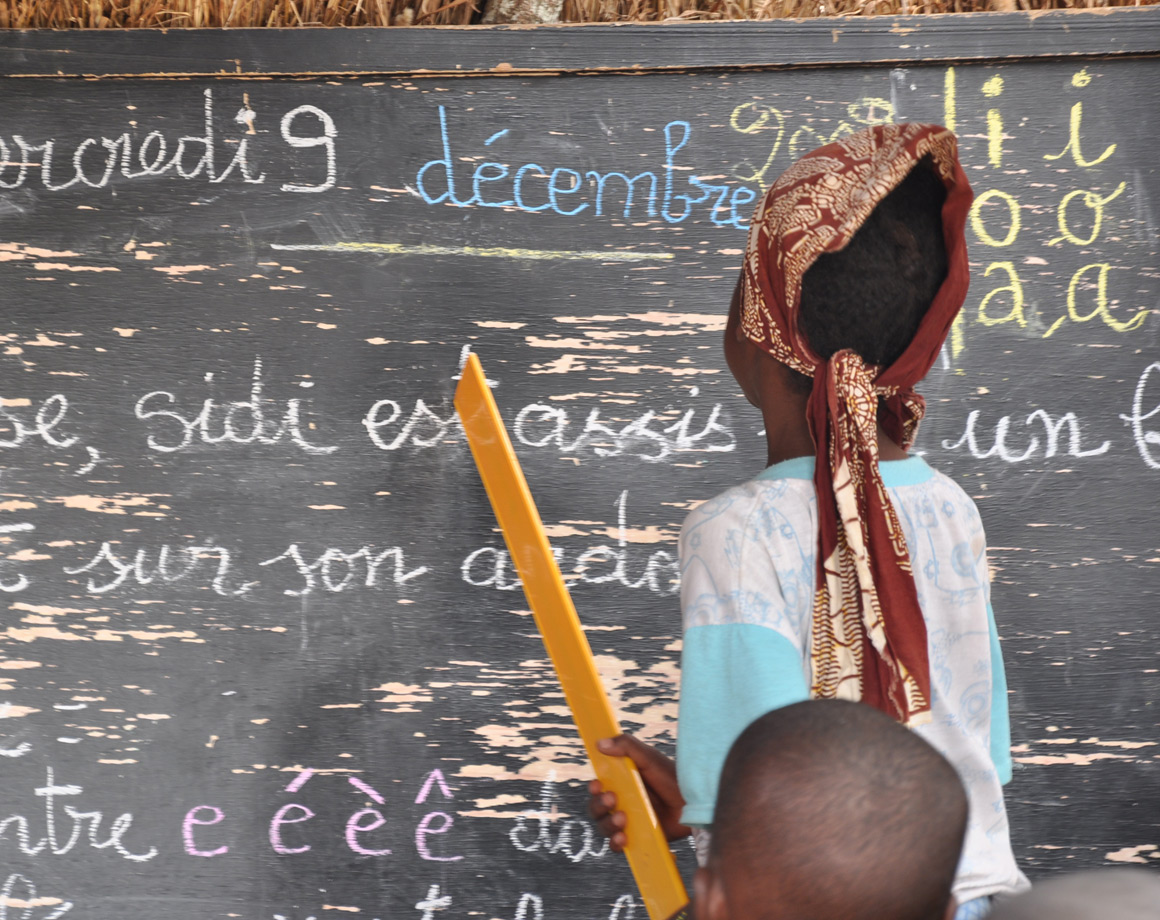 ercredi 9 décembre
i i
o o
a a
se, sidi est assis un
sur son ardo
ntre e é è ê da